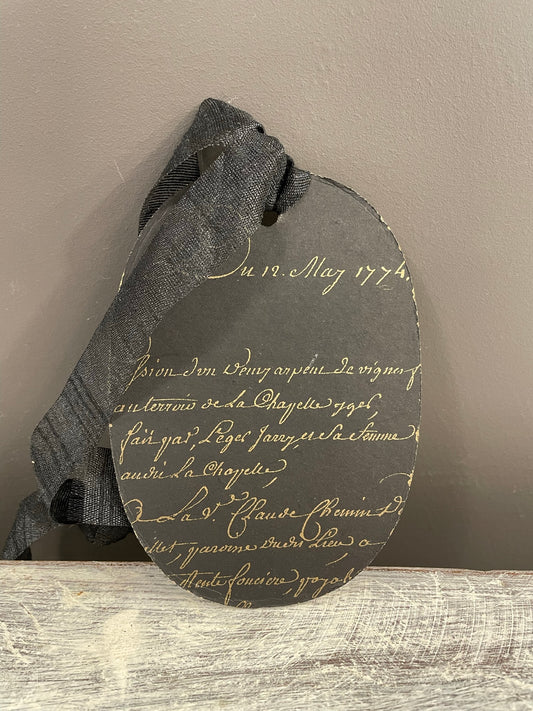 Du 12. May 1774.
ssion d'un demy arpent de vignes
au terroir de La Chapelle
fait par, Leger Jarry, et Sa femme
audit La Chapelle,
La Ve. Claude Chemin D
paroisse dudit Lieu, a
Rente fonciere,